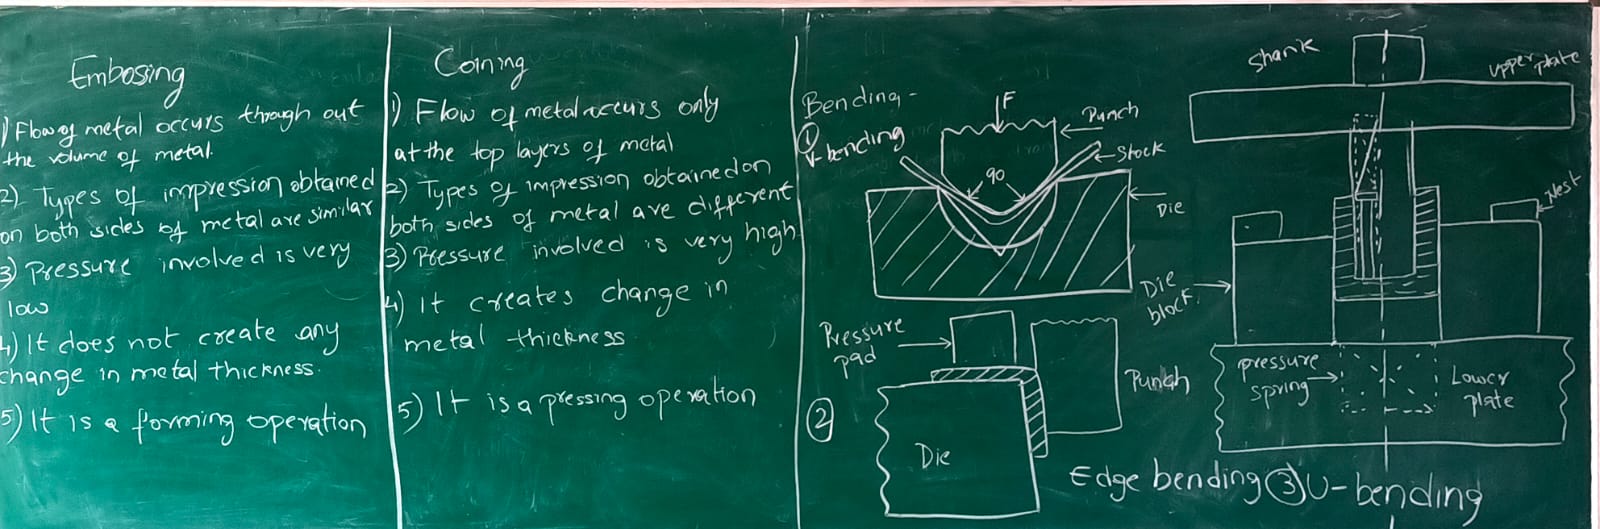 Embosing
1) Flow of metal occurs through out
the volume of metal.
2) Types of impression obtained
on both sides of metal are similar
3) Pressure involved is very
low
4) It does not create any
change in metal thickness.
5) It is a forming operation
Coining
1) Flow of metal occurs only
at the top layers of metal
2) Types of impression obtained on
both sides of metal are different
3) Pressure involved is very high
4) It creates change in
metal thickness
5) It is a pressing operation
Bending -
1
V-bending
F
Punch
Stock
90
Die
Pressure
pad
Punch
2
Die
Edge bending
Shank
Upper plate
Nest
Die
block
pressure
spring
Lower
plate
3) U-bending